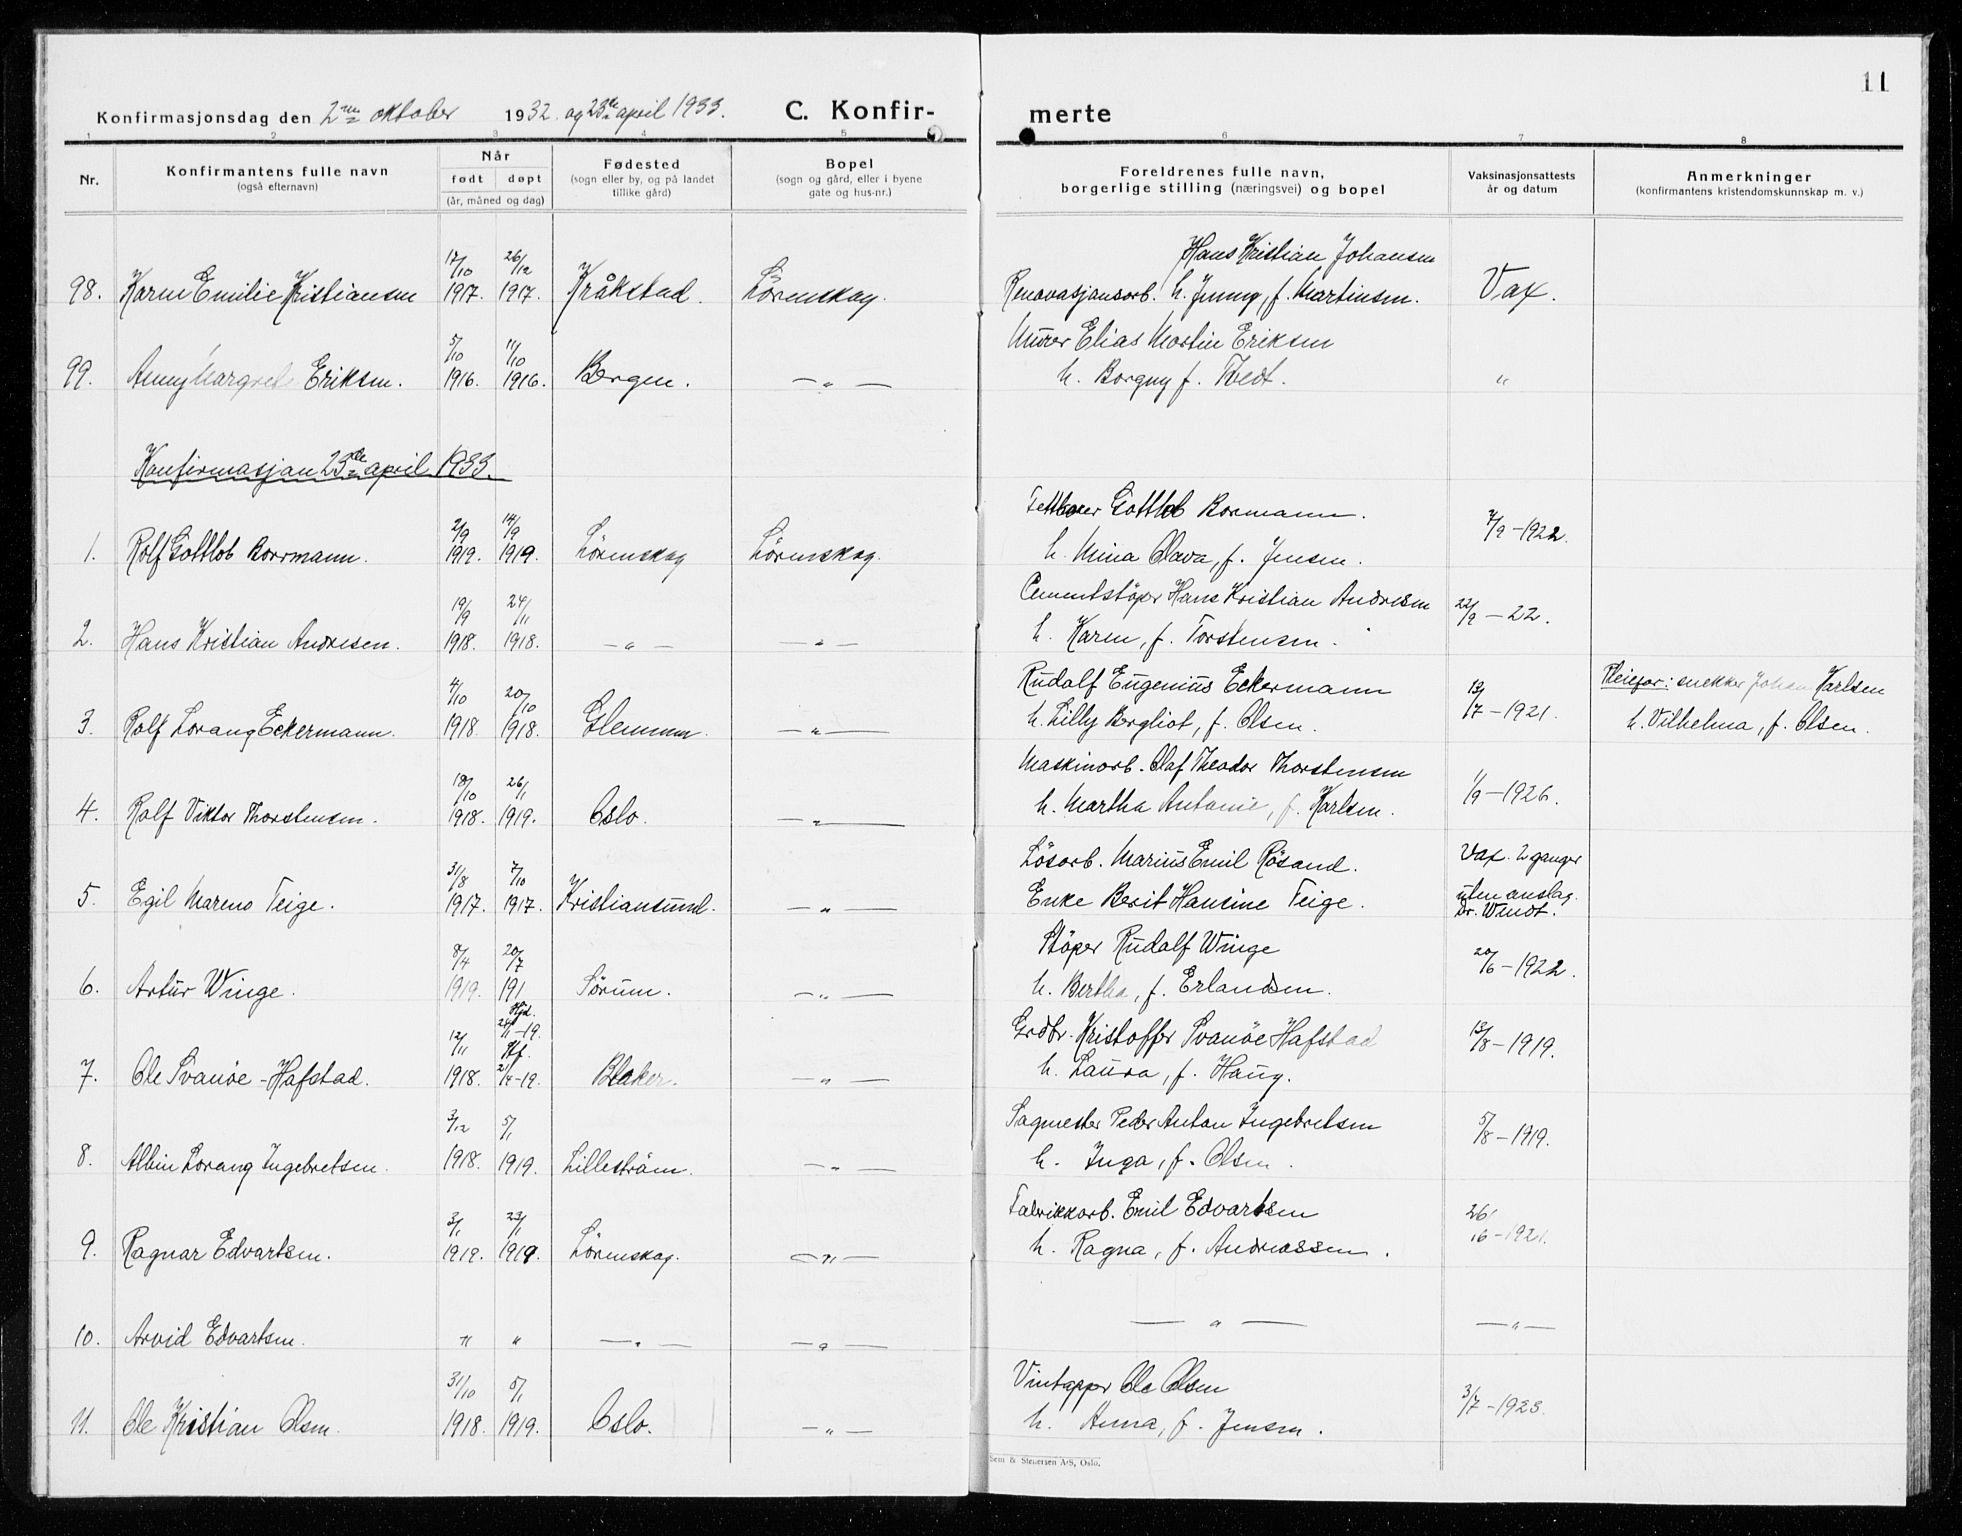 11
Konfirmasjonsdag den 2nen oktober 1932 og 23de april 1933. C. Konfir- merte
1 2 3 4 5 6 7 8
Nr.
Konfirmantens fulle navn
(også efternavn)
Når
født døpt
(år, måned og dag)
Fødested
(sogn eller by, og på landet
tillike gård)
Bopel
(sogn og gård, eller i byene
gate og hus-nr.)
Foreldrenes fulle navn,
borgerlige stilling (næringsvei) og bopel
Vaksinasjonsattests
år og datum
Anmerkninger
(konfirmantens kristendomskunnskap m. v.)
17/10 26/12 Hans Kristian Johansen
98. Karen Emilie Kristiansen 1917. 1917. Kråkstad. Lörenskog. Renovasjonsarb. h. Jenny, f. Martinsen. Vax.
5/10 11/10 Murer Elias Martin Eriksen
99. Anny Margret Eriksen. 1916. 1916. Bergen. — „ — h. Borgny f. Tvedt. „
Konfirmasjon 23de april 1933.
2/9 14/9 Gottlob Bormann. /9-1922.
1. Rolf Gottlob Borrmann. 1919. 1919. Lörenskog Lörenskog. h. Mina Olava, f. Jensen.
19/9 24/11 Cementstöper Hans Kristian Andresen 22/9 - 22.
2. Hans Kristian Andresen. 1918. 1918. — „ — — „ — h. Karen, f. Torstensen.
4/10 20/10 Rudolf Eugenius Eckermann 13/7 - 1921. Pleiefar: snekker Johan Karlsen
3. Rolf Lorang Eckermann. 1918. 1918. Glemmen. — „ — h. Lilly Bergliot, f. Olsen. h. Vilhelma, f. Olsen.
18/10 26/1 Maskinarb. Olaf Theodor Thorstensen 1/9 - 1926.
4. Rolf Viktor Thorstensen. 1918. 1919. Oslo. — „ — h. Martha Antonie, f. Karlsen.
31/8 7/10 Lösarb. Marius Emil Rösand. Vax. 2 ganger
5. Egil Mareno Teige. 1917. 1917. Kristiansund. — „ — Enke Berit Hansine Teige. uten anslag.
Dr. Windt.
8/4 20/7 Stöper Rudolf Winge 20/6 - 1922.
6. Artur Winge. 1919. 191 Sörum. — „ — h. Bertha, f. Erlandsen.
12/11 Hjd. /1-19. Grdbr. Kristoffer Svanöe Hafstad 13/8 - 1919.
7. Ole Svanöe-Hafstad. 1918. Stf. 2/4-19. Blaker. — „ — h. Laura, f. Haug.
3/12 5/1 Sagmester Peder Anton Ingebretsen 5/8 - 1919.
8. Albin Lorang Ingebretsen. 1918. 1919. Lilleström. — „ — h. Inga, f. Olsen.
3/1 23/1 Fabrikkarb. Emil Edvartsen 26/6 - 1921.
9. Ragnar Edvartsen. 1919. 1919 Lörenskog. — „ — h. Ragna, f. Andreassen.
10. Arvid Edvartsen. „ „ — „ — — „ — — „ — — „ —
31/10 5/1 Vintapper Ole Olsen 3/7 - 1923.
11. Ole Kristian Olsen. 1918. 1919. Oslo. — „ — h. Anna, f. Jensen.
Sem & Stenersen A/S, Oslo.